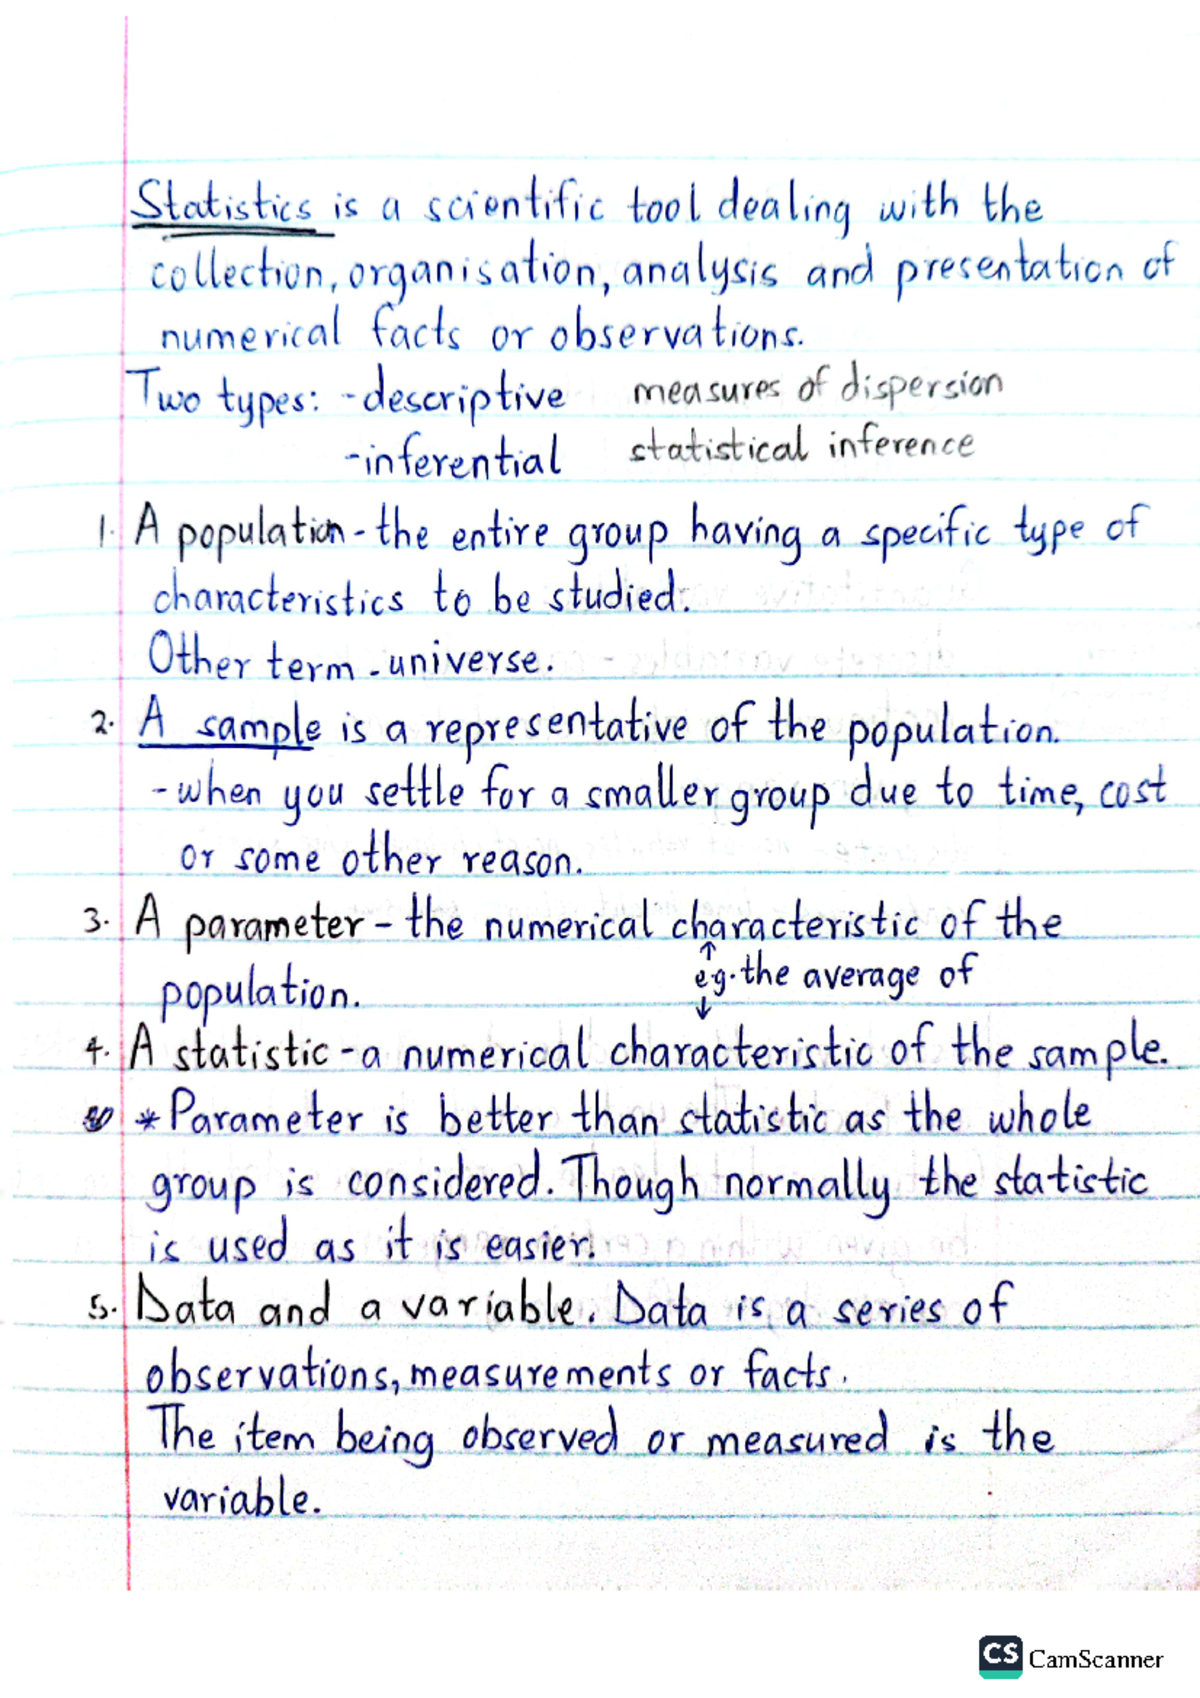 Statistics is a scientific tool dealing with the
collection, organisation, analysis and presentation of
numerical facts or observations.
Two types: -descriptive measures of dispersion
-inferential statistical inference
1. A population - the entire group having a specific type of
characteristics to be studied.
Other term - universe.
2. A sample is a representative of the population.
- when you settle for a smaller group due to time, cost
or some other reason.
3. A parameter - the numerical characteristic of the
↑
population. eg. the average of
↓
4. A statistic - a numerical characteristic of the sample.
* Parameter is better than statistic as the whole
group is considered. Though normally the statistic
is used as it is easier.
5. Data and a variable. Data is a series of
observations, measurements or facts.
The item being observed or measured is the
variable.
CS CamScanner